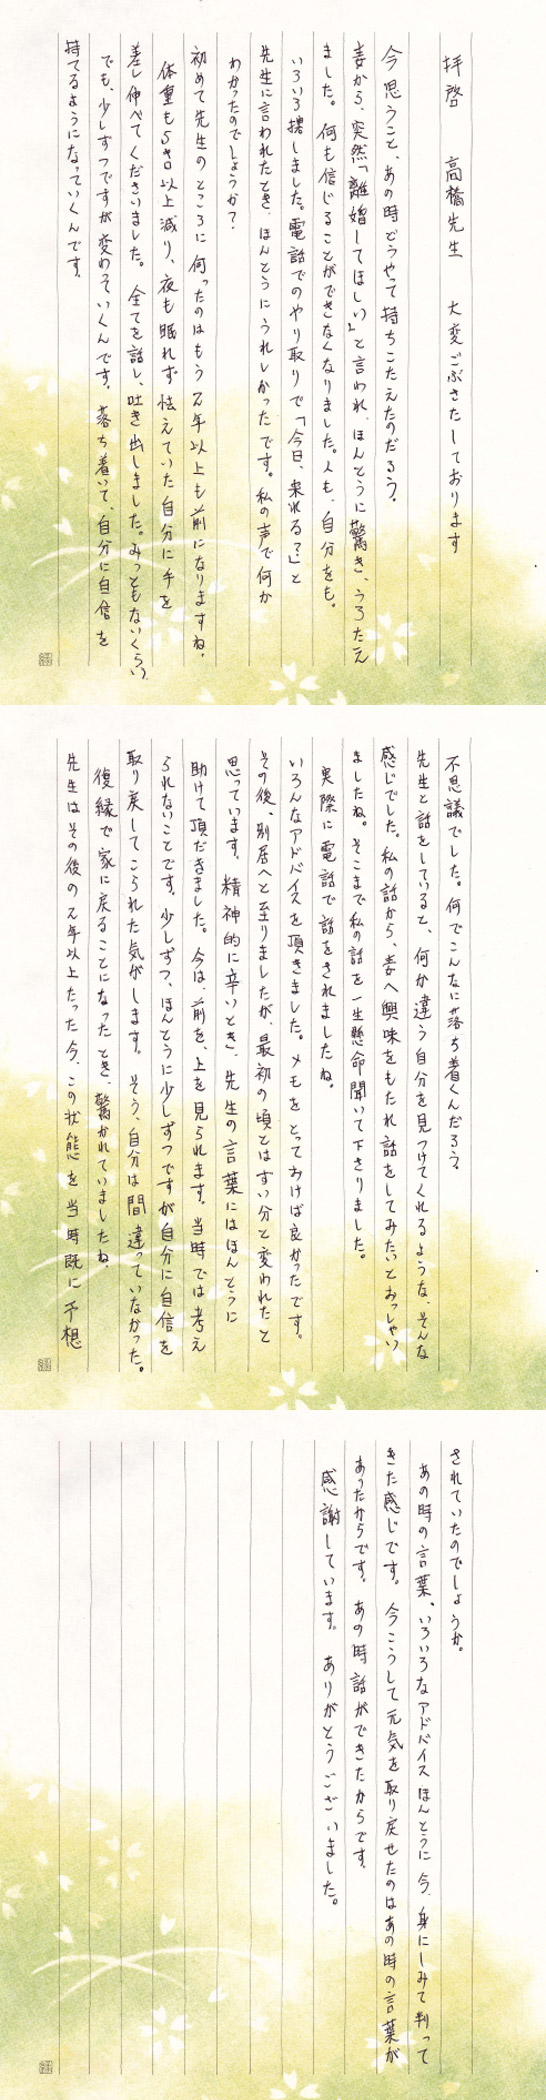 拝啓　高橋先生　大変ごぶさたしております
今思うこと、あの時どうやって持ちこたえたのだろう。
妻から、突然「離婚してほしい」と言われ、ほんとうに驚き、うろたえ
ました。何も信じることができなくなりました。人も、自分をも。
いろいろ捜しました。電話でのやり取りで「今日、来れる？」と
先生に言われたとき、ほんとうにうれしかったです。私の声で何か
わかったのでしょうか？
初めて先生のところに伺ったのはもう2年以上も前になりますね。
体重も5キロ以上減り、夜も眠れず怯えていた自分に手を
差し伸べてくださいました。全てを話し、吐き出しました。みっともないくらい。
でも、少しずつですが変わっていくんです。落ち着いて、自分に自信を
持てるようになっていくんです。
不思議でした。何でこんなに落ち着くんだろう。
先生と話をしていると、何か違う自分を見つけてくれるような、そんな
感じでした。私の話から、妻へ興味をもたれ話をしてみたいとおっしゃい
ましたね。そこまで私の話を一生懸命聞いて下さりました。
実際に電話で話をされましたね。
いろんなアドバイスを頂きました。メモをとっておけば良かったです。
その後、別居へと至りましたが、最初の頃とはずい分と変われたと
思っています。精神的に辛いとき、先生の言葉にはほんとうに
助けて頂だきました。今は、前を、上を見られます。当時では考え
られないことです。少しずつ、ほんとうに少しずつですが自分に自信を
取り戻してこられた気がします。そう、自分は間違っていなかった。
復縁で家に戻ることになったとき、驚かれていましたね。
先生はその後の2年以上たった今、この状態を当時既に予想
されていたのでしょうか。
あの時の言葉、いろいろなアドバイスほんとうに今、身にしみて判って
きた感じです。今こうして元気を取り戻せたのはあの時の言葉が
あったからです。あの時話ができたからです。
感謝しています。ありがとうございました。